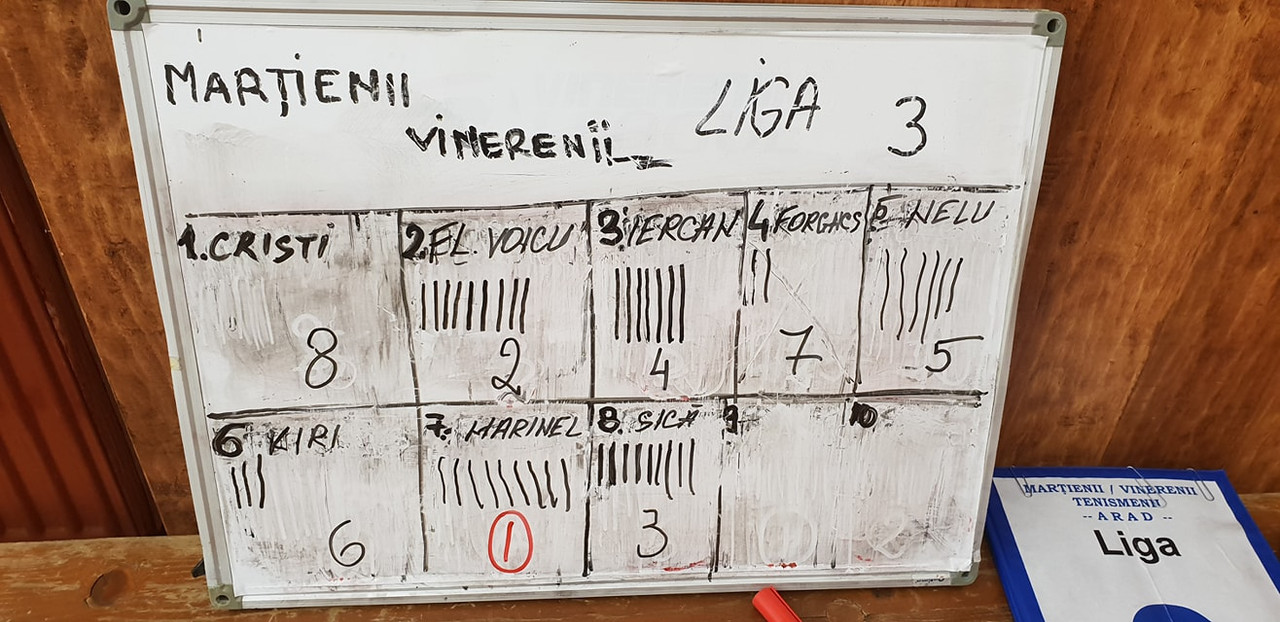 MARȚIENII
VINERENII
LIGA 3
1. CRISTI
8
2. FL. VOICU
2
3 IERCAN
4
4 FORGACS
7
5 NELU
5
6 KIRI
6
7. MARINEL
1
8. SICĂ
3
9
10
MARȚIENII / VINERENII
TENISMENII
-- A R A D --
Liga